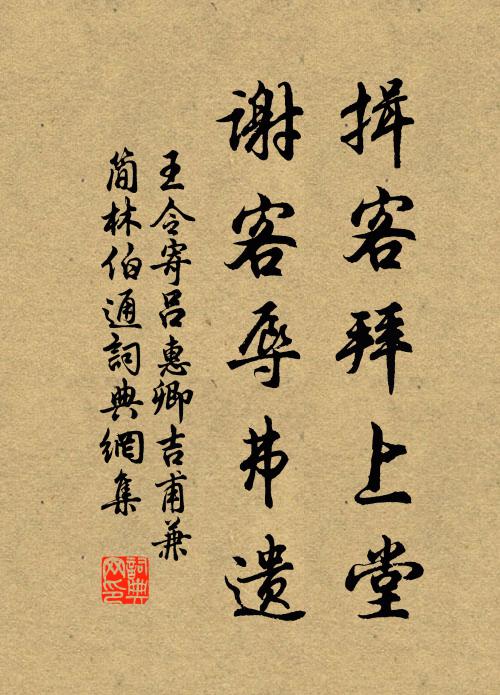 揖客拜上堂
谢客辱弗遗
王令寄吕惠卿吉甫兼
简林伯通詞典網集
詞典网印